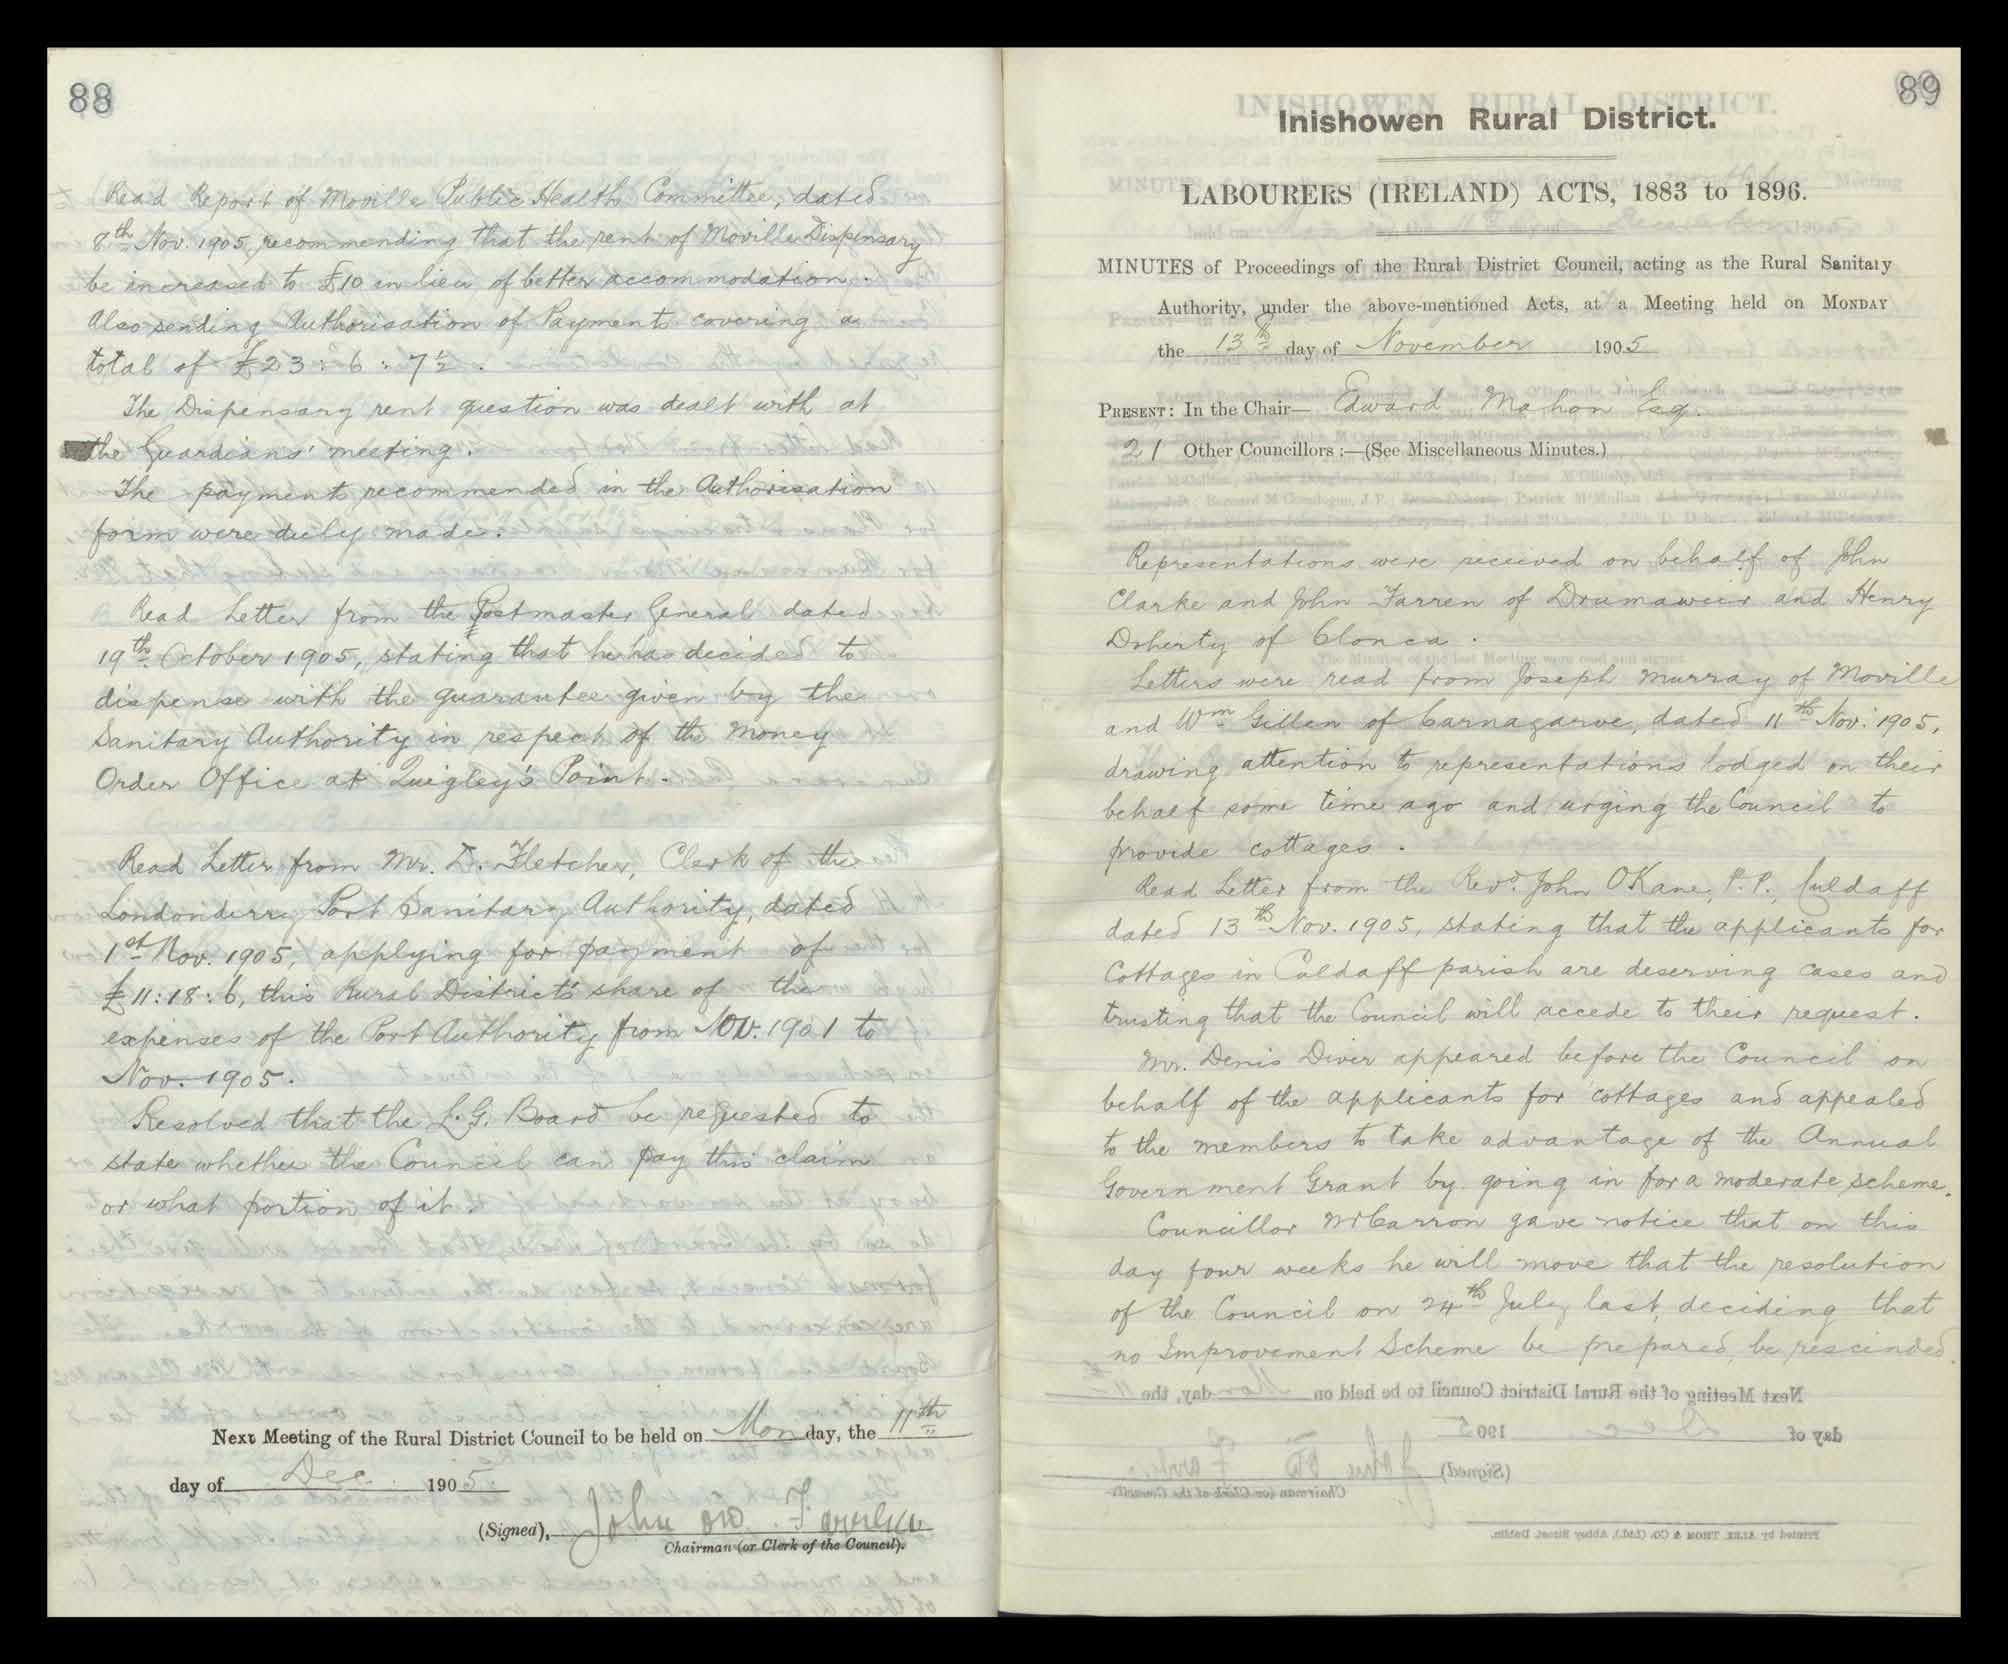 88
Read Report of Moville Public Health Committee, dated
8th Nov. 1905, recommending that the rent of Moville Dispensary
be increased to £10 in lieu of better accommodation.
Also sending Authorisation of Payments covering a
total of £23 : 6 : 7½.
The Dispensary rent question was dealt with at
the Guardians' meeting.
The payments recommended in the Authorisation
form were duly made.
Read Letter from the Postmaster General dated
19th October 1905, stating that he has decided to
dispense with the guarantee given by the
Sanitary Authority in respect of the Money
Order Office at Quigley's Point.
Read Letter from Mr. D. Fletcher, Clerk of the
Londonderry Port Sanitary Authority, dated
1st Nov. 1905, applying for payment of
£11:18:6, this Rural District's share of the
expenses of the Port Authority from Nov. 1901 to
Nov. 1905.
Resolved that the L. G. Board be requested to
state whether the Council can pay this claim
or what portion of it.
Next Meeting of the Rural District Council to be held on Monday, the 11th
day of Dec. 1905
(Signed), John
Chairman (or Clerk of the Council).
89
Inishowen Rural District.
LABOURERS (IRELAND) ACTS, 1883 to 1896.
MINUTES of Proceedings of the Rural District Council, acting as the Rural Sanitary
Authority, under the above-mentioned Acts, at a Meeting held on MONDAY
the 13th day of November 1905
PRESENT: In the Chair— Edward Mahon Esq.
21 Other Councillors:—(See Miscellaneous Minutes.)
Representations were received on behalf of John
Clarke and John Farren of Drumaweir and Henry
Doherty of Clonca.
Letters were read from Joseph Murray of Moville
and Wm Gillen of Carnagarve, dated 11th Nov. 1905,
drawing attention to representations lodged on their
behalf some time ago and urging the Council to
provide cottages.
Read Letter from the Revd. John O'Kane, P.P., Culdaff
dated 13th Nov. 1905, stating that the applicants for
Cottages in Culdaff parish are deserving cases and
trusting that the Council will accede to their request.
Mr. Denis Diver appeared before the Council on
behalf of the applicants for cottages and appealed
to the members to take advantage of the Annual
Government Grant by going in for a moderate scheme.
Councillor McCarron gave notice that on this
day four weeks he will move that the resolution
of the Council on 24th July last, deciding that
no Improvement Scheme be prepared, be rescinded.